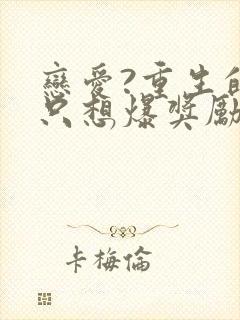 戀愛?重生的
只想爆獎勵
卡梅倫